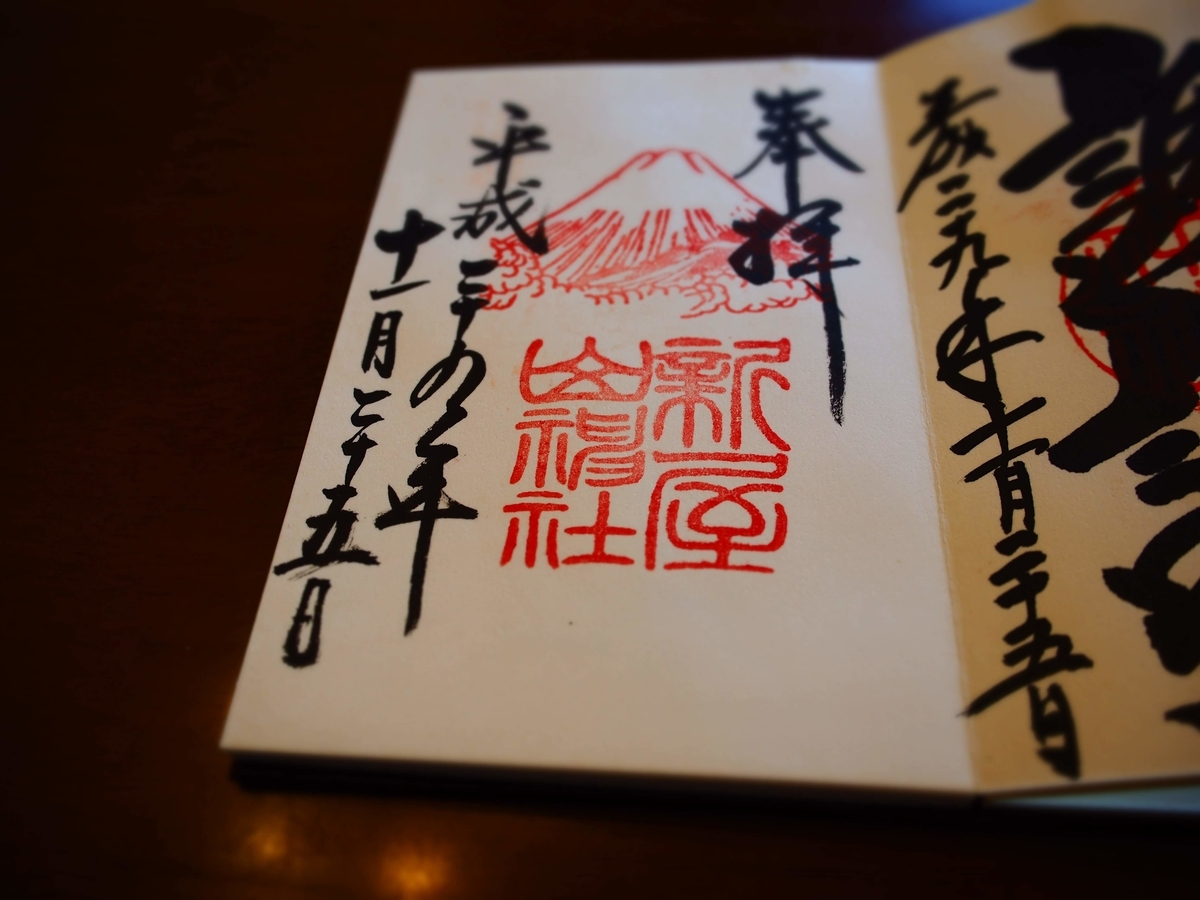 平成二十九年十一月二十五日
奉拝
新屋
山神社
平成二十九年
十一月二十五日